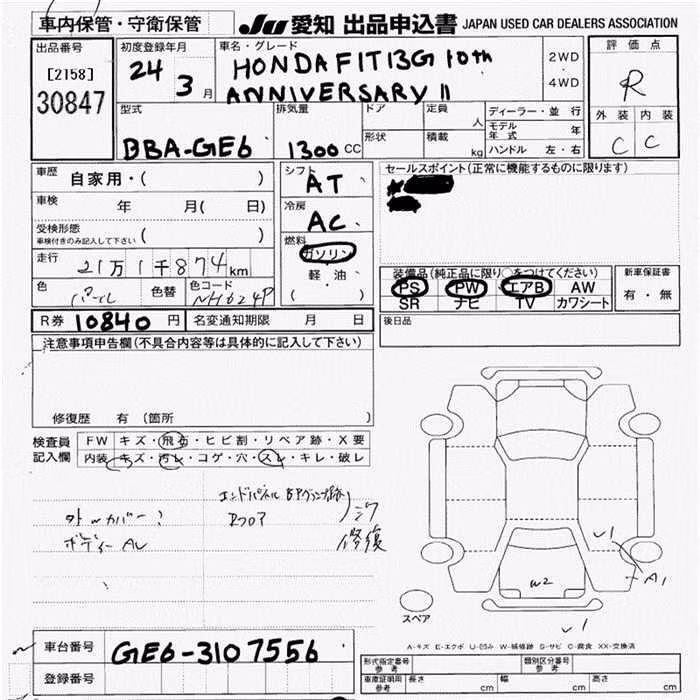 車内保管・守衛保管
JU 愛知 出品申込書 JAPAN USED CAR DEALERS ASSOCIATION
出品番号
[2158]
30847
初度登録年月
24 3 月
車名・グレード
HONDA FIT 13G 10th
ANNIVERSARY II
2WD
・
4WD
評価点
R
外装 内装
C C
型式
DBA-GE6
排気量
1300 CC
ドア
形状
定員
人
積載
kg
ディーラー・並行
モデル年式 年
ハンドル 左・右
車歴 自家用・( )
車検 年 月( 日)
受検形態
車検付きのみ記入して下さい ( )
走行 21万1千874km
色 パール 色替 色コード NH624P
シフト
AT
冷房
AC
燃料
ガソリン
軽・油
( )
セールスポイント(正常に機能するものに限ります)
装備品(純正品に限り○をつけてください)
PS PW エアB AW
SR ナビ TV カワシート
新車保証書
有・無
R券 10840 円 名変通知期限 月 日
後日品
注意事項申告欄(不具合内容等は具体的に記入して下さい)
修復歴 有 (箇所 )
検査員
記入欄
FW キズ・飛石・ヒビ割・リペア跡・X要
内装 キズ・汚レ・コゲ・穴・スレ・キレ・破レ
エンドパネル
Rフロア
修復
カバー?
ボディー
W2
A1
スペア
A-キズ E-エクボ U-凹み W-補修跡 S-サビ C-腐食 XX-交換済
車台番号 GE6-3107556
登録番号
形式指定番号
参考
類別区分番号
参考
車庫証明用
参考
長さ cm 幅 cm 高さ cm